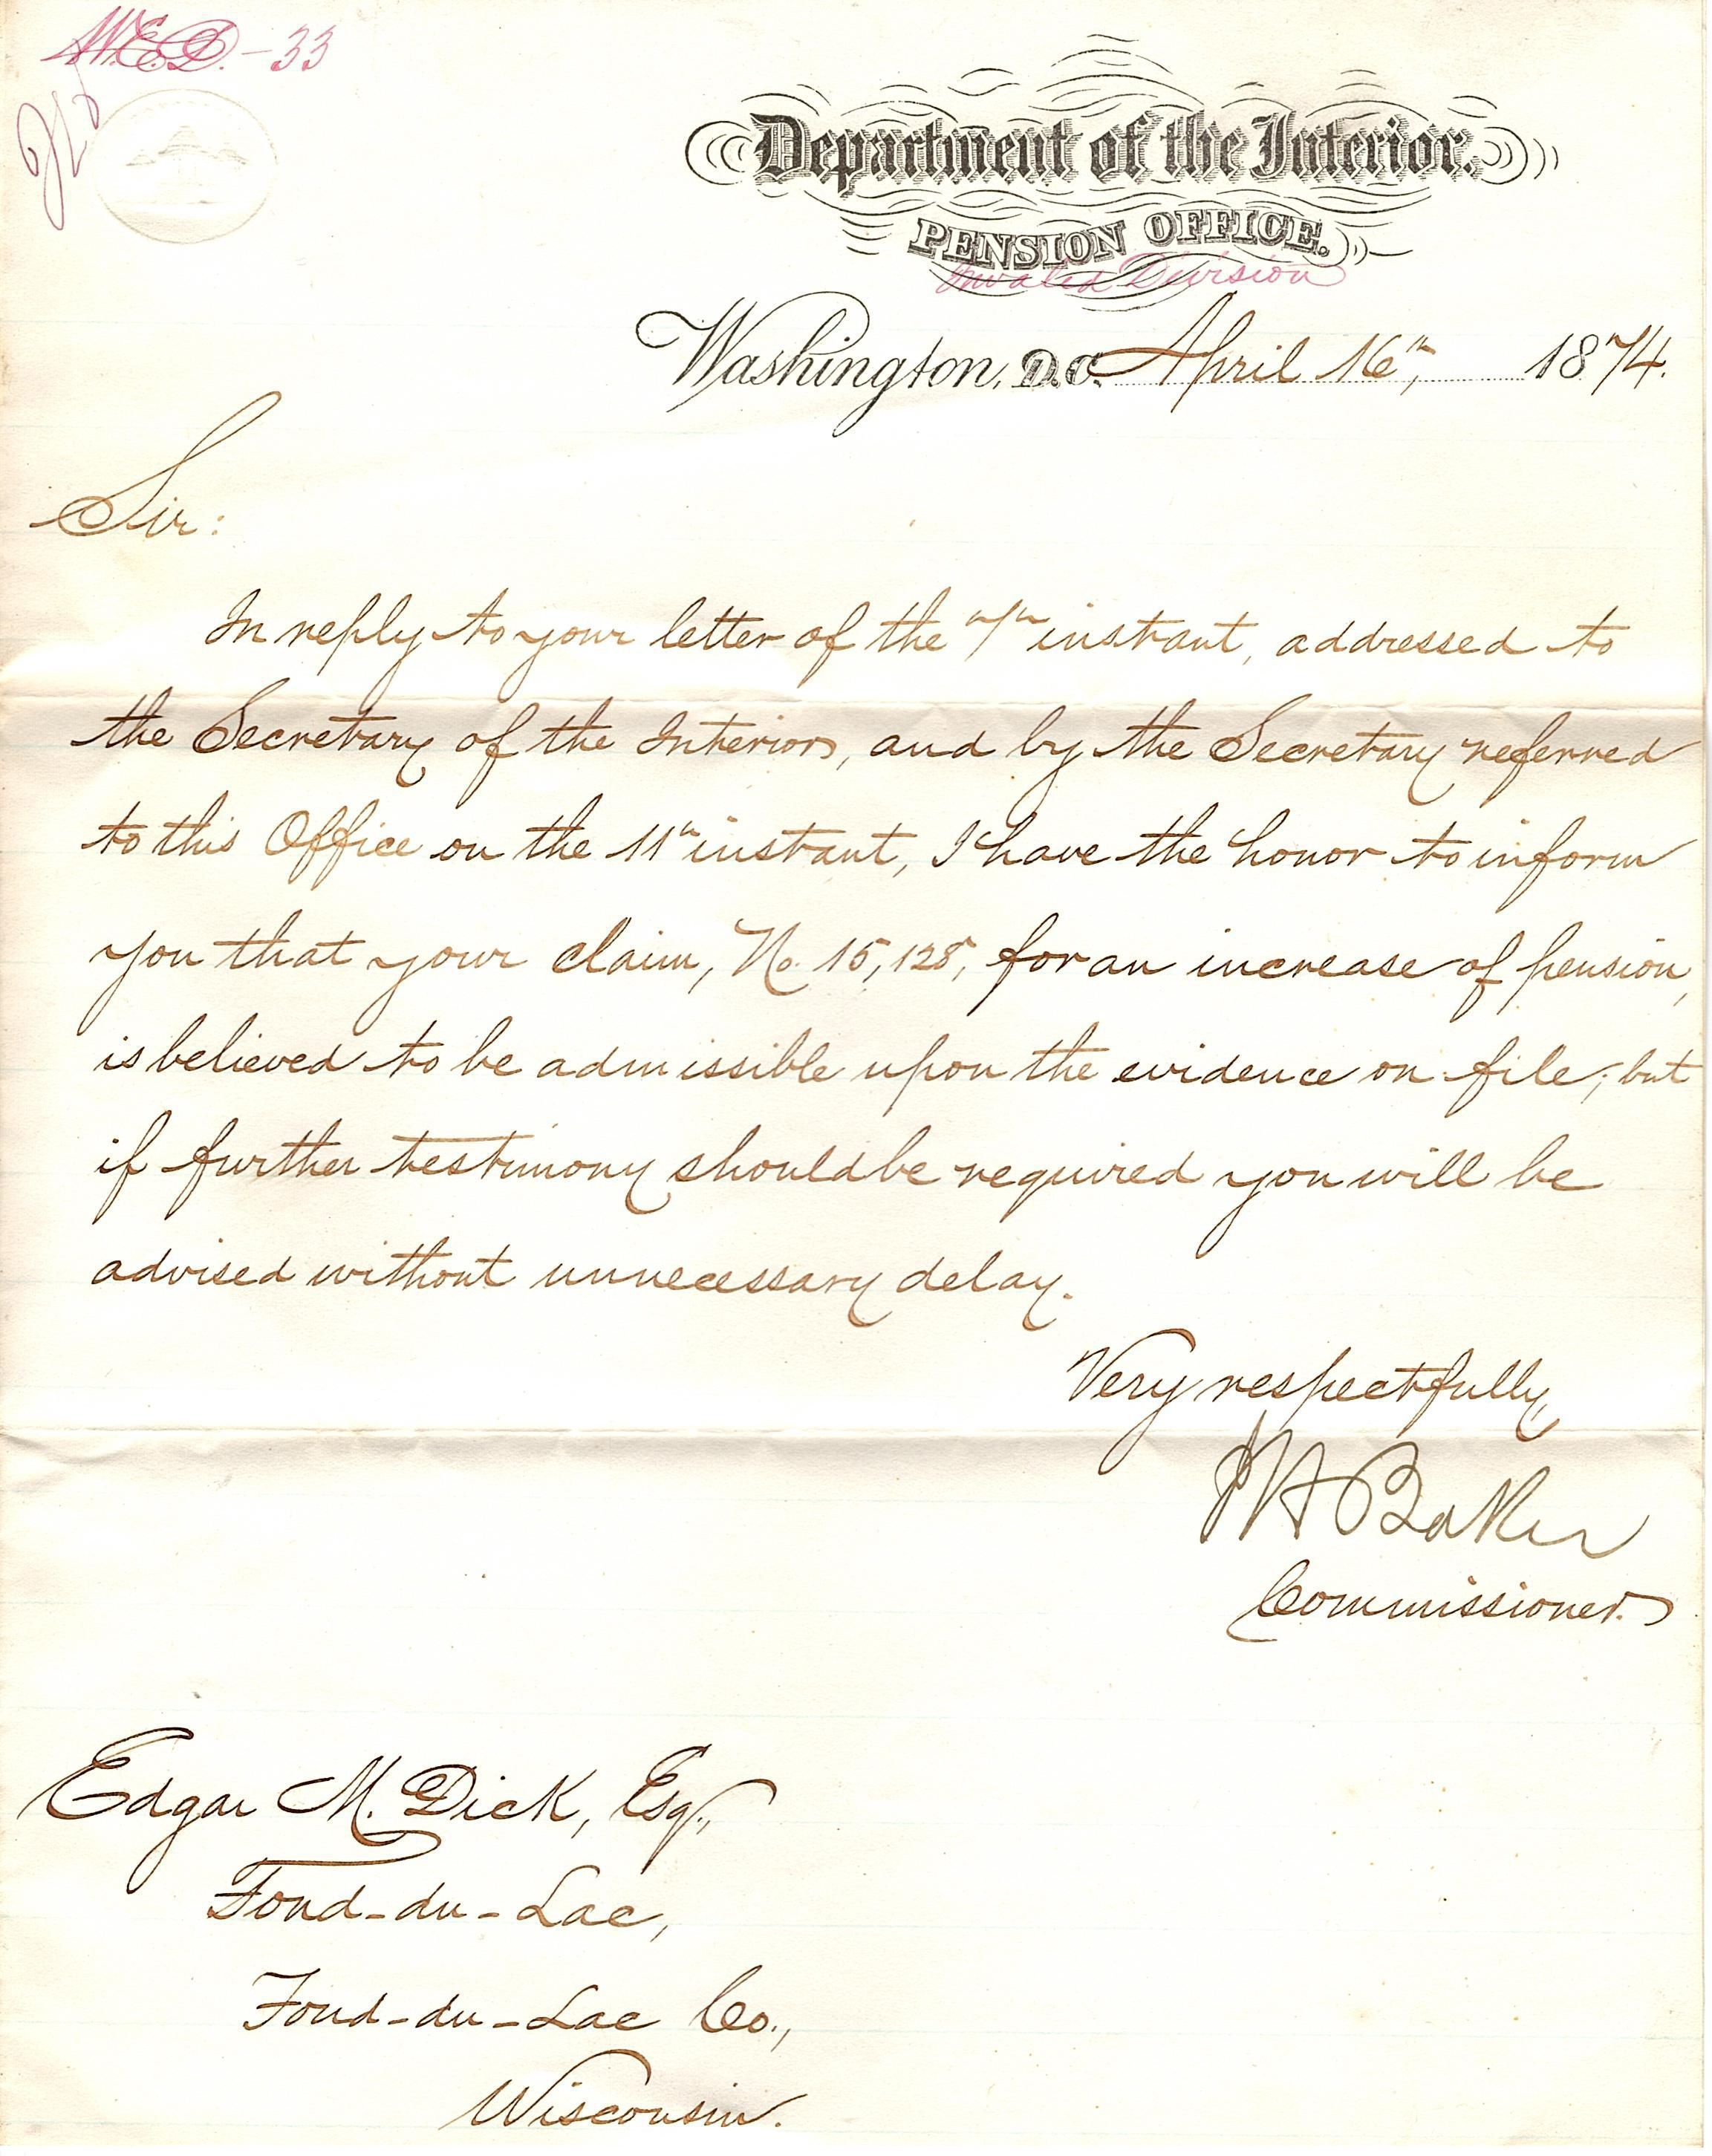 W.E.D. - 33
Department of the Interior.
PENSION OFFICE.
Invalid Division
Washington, D.C. April 16th, 1874.
Sir:
In reply to your letter of the 7th instant, addressed to
the Secretary of the Interior, and by the Secretary referred
to this Office on the 11th instant, I have the honor to inform
you that your claim, No. 15,128, for an increase of pension,
is believed to be admissible upon the evidence on file; but
if further testimony should be required you will be
advised without unnecessary delay.
Very respectfully,
J H Baker
Commissioner.
Edgar M. Dick, Esq.,
Fond-du-Lac,
Fond-du-Lac Co.,
Wisconsin.